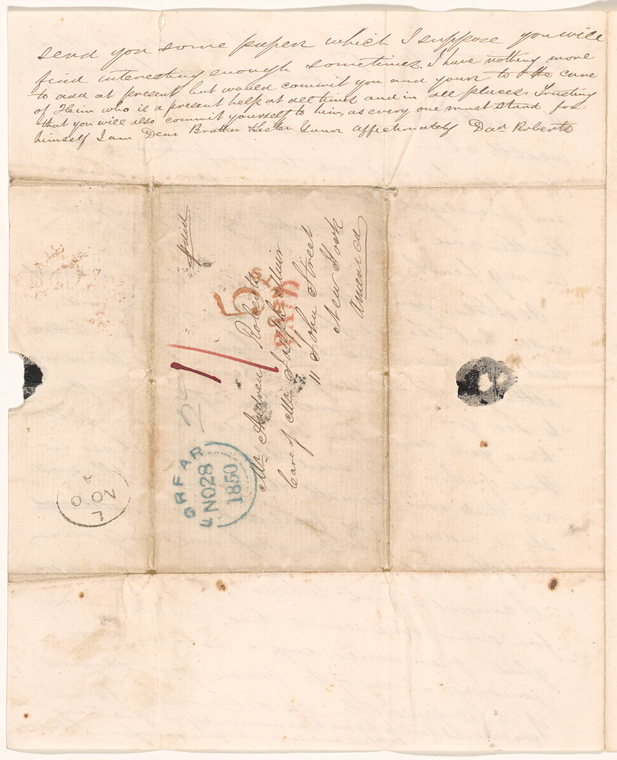 send you some papers which I suppose you will
find interesting enough sometimes I have nothing more
to add at present but would commit you and yours to the care
of Him who is a present help at all times and in all places Trusting
that you will also commit yourself to him, as every one must stand for
himself I am Dear Brother & Sister Yours affectionately Dad Roberts
paid
Mr Andrew Roberts
Care of Mr Joseph
11 John Street
New York
America
5
PAID
FORFAR
NO 28
1850
NO